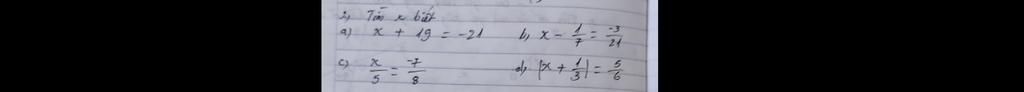 2, Tìm x biết
a) x + 19 = -21 b, x - 1/7 = -3/21
c) x/5 = -7/8 d, |x + 1/3| = 5/6